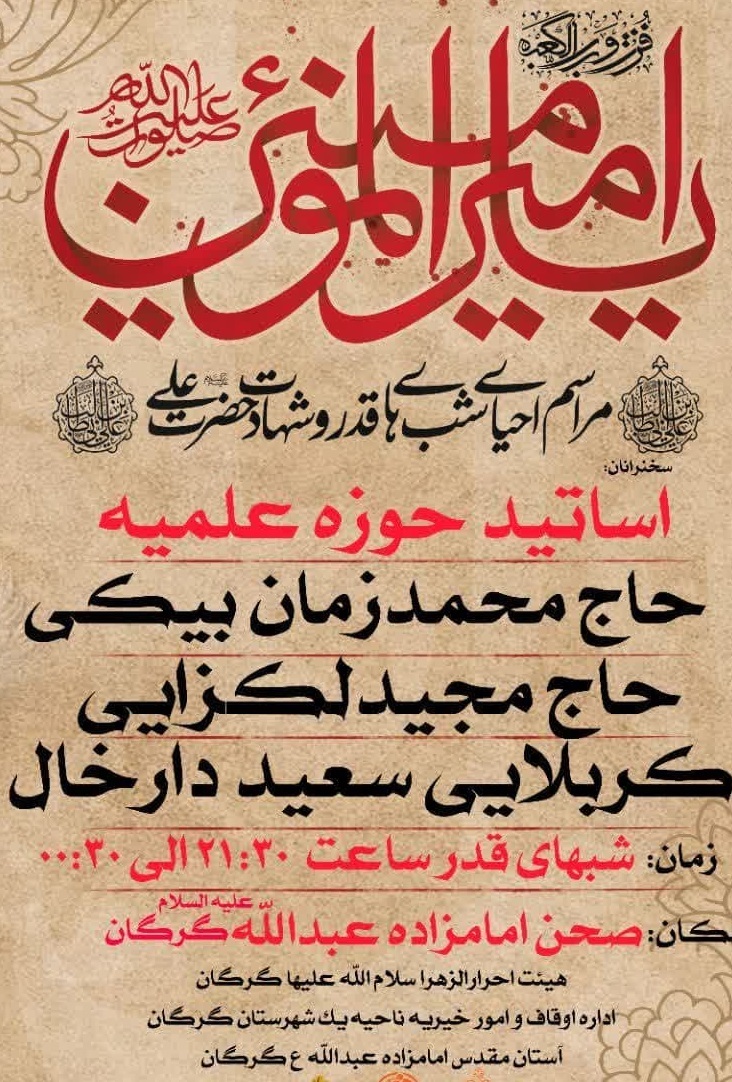 فزت و رب الکعبه
یا امیرالمومنین
صلوات الله علیه
مراسم احیای شب های قدر و شهادت حضرت علی
علی بن ابی طالب
علی بن ابی طالب
سخنرانان:
اساتید حوزه علمیه
حاج محمدزمان بیکی
حاج مجیدلکزایی
کربلایی سعید دارخال
زمان: شبهای قدر ساعت ۲۱:۳۰ الی ۰۰:۳۰
کان: صحن امامزاده عبداللّه علیه السلام گرگان
هیئت احرارالزهرا سلام الله علیها گرگان
اداره اوقاف و امور خیریه ناحیه یك شهرستان گرگان
آستان مقدس امامزاده عبدالله ع گرگان